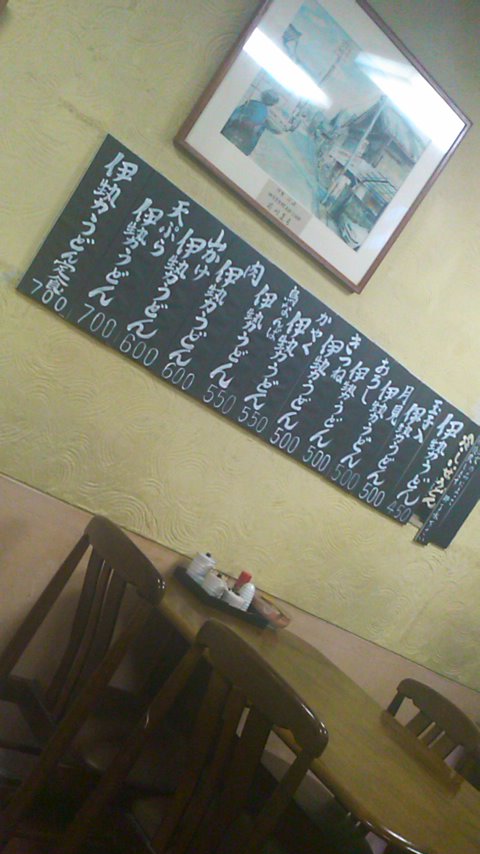 冷しうどん
伊勢うどん 450
玉子入 伊勢うどん 500
月見 伊勢うどん 500
おろし 伊勢うどん 500
きつね 伊勢うどん 500
かやく 伊勢うどん 550
鳥なんば 伊勢うどん 550
肉 伊勢うどん 600
山かけ 伊勢うどん 600
天ぷら 伊勢うどん 700
伊勢うどん定食 700